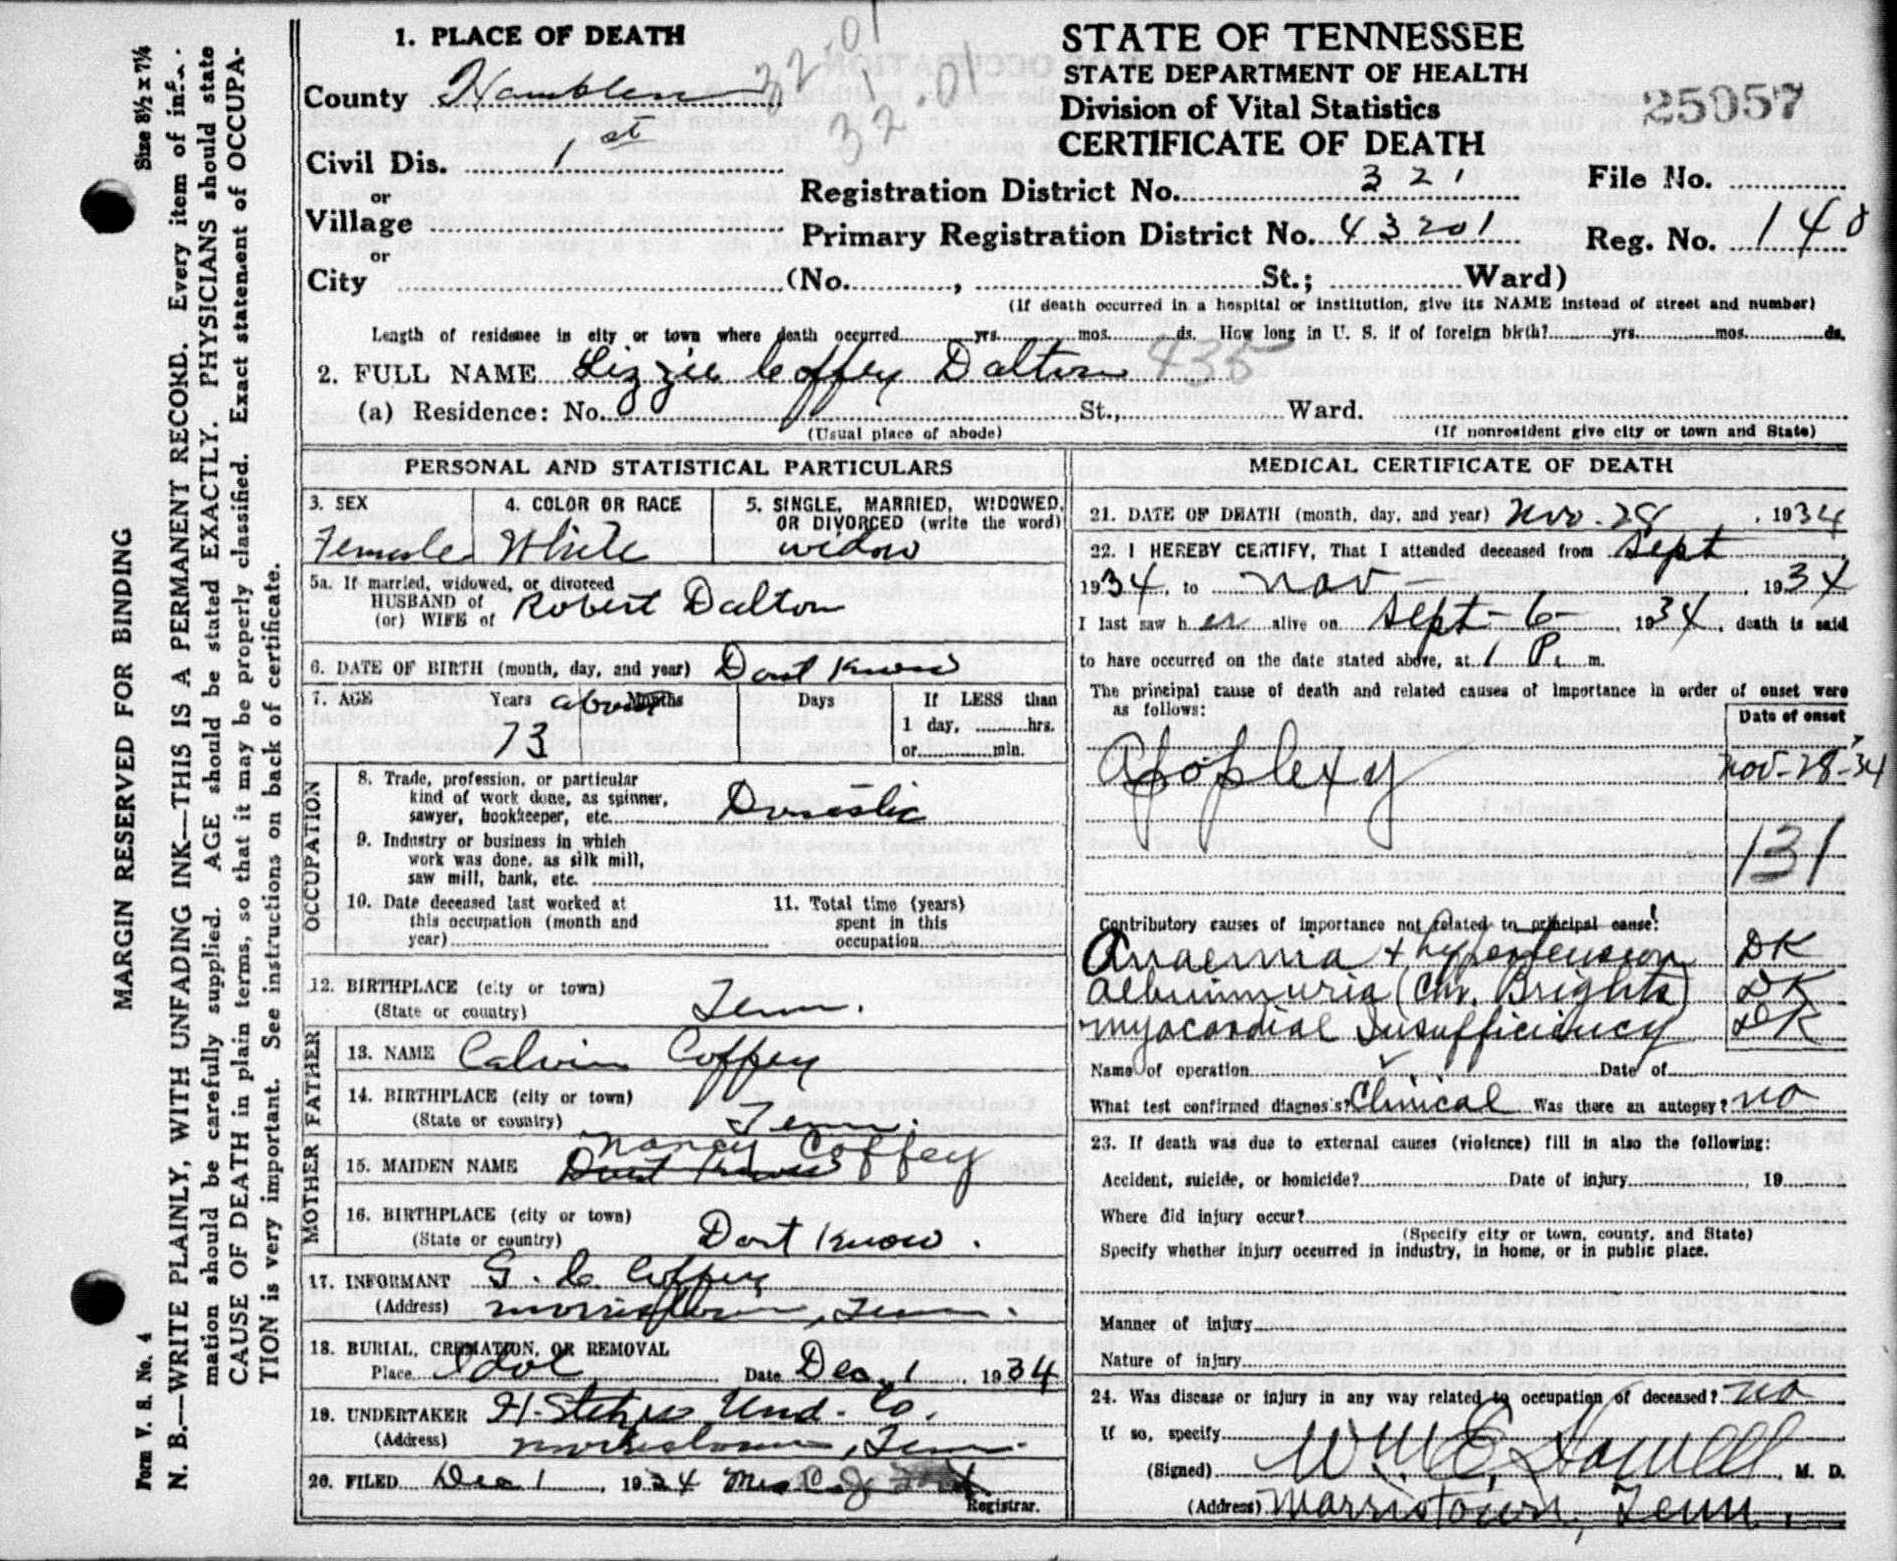 Size 8½ x 7¼
MARGIN RESERVED FOR BINDING
N. B.—WRITE PLAINLY, WITH UNFADING INK—THIS IS A PERMANENT RECORD. Every item of infor-
mation should be carefully supplied. AGE should be stated EXACTLY. PHYSICIANS should state
CAUSE OF DEATH in plain terms, so that it may be properly classified. Exact statement of OCCUPA-
TION is very important. See instructions on back of certificate.
Form V. S. No. 4
1. PLACE OF DEATH
County Hamblen
32 .01
32 .01
Civil Dis. 1st
or
Village
or
City (No. , St.; Ward)
STATE OF TENNESSEE
STATE DEPARTMENT OF HEALTH
Division of Vital Statistics
CERTIFICATE OF DEATH
25057
Registration District No. 321
File No.
Primary Registration District No. 43201
Reg. No. 140
(If death occurred in a hospital or institution, give its NAME instead of street and number)
Length of residence in city or town where death occurred yrs. mos. ds. How long in U. S. if of foreign birth? yrs. mos. ds.
2. FULL NAME Lizzie Coffey Dalton 435
(a) Residence: No. St., Ward.
(Usual place of abode) (If nonresident give city or town and State)
PERSONAL AND STATISTICAL PARTICULARS
3. SEX Female
4. COLOR OR RACE White
5. SINGLE, MARRIED, WIDOWED, OR DIVORCED (write the word) widow
5a. If married, widowed, or divorced
HUSBAND of
(or) WIFE of Robert Dalton
6. DATE OF BIRTH (month, day, and year) Dont Know
7. AGE Years about Months Days If LESS than
73 1 day, hrs.
or min.
OCCUPATION
8. Trade, profession, or particular
kind of work done, as spinner,
sawyer, bookkeeper, etc. Domestic
9. Industry or business in which
work was done, as silk mill,
saw mill, bank, etc.
10. Date deceased last worked at
this occupation (month and
year)
11. Total time (years)
spent in this
occupation
12. BIRTHPLACE (city or town)
(State or country) Tenn.
FATHER
13. NAME Calvin Coffey
14. BIRTHPLACE (city or town)
(State or country) Tenn.
MOTHER
Nancy Coffey
15. MAIDEN NAME Dont Know
16. BIRTHPLACE (city or town)
(State or country) Dont Know.
17. INFORMANT G. C. Coffey
(Address) Morristown, Tenn.
18. BURIAL, CREMATION, OR REMOVAL
Place Idol Date Dec. 1, 1934
19. UNDERTAKER Und. Co.
(Address) Morristown, Tenn.
20. FILED Dec 1, 1934 Mrs C. J.
Registrar.
MEDICAL CERTIFICATE OF DEATH
21. DATE OF DEATH (month, day, and year) Nov. 28, 1934
22. I HEREBY CERTIFY, That I attended deceased from Sept,
1934, to Nov-, 1934
I last saw her alive on Sept-6-, 1934, death is said
to have occurred on the date stated above, at 1 P. m.
The principal cause of death and related causes of importance in order of onset were
as follows:
Date of onset
Apoplexy Nov-28-34
131
Contributory causes of importance not related to principal cause:
Anaemia + hypertension DK
Albuminuria (Chr. Brights) DK
Myocardial Insufficiency DK
Name of operation Date of
What test confirmed diagnosis? Clinical Was there an autopsy? no
23. If death was due to external causes (violence) fill in also the following:
Accident, suicide, or homicide? Date of injury , 19
Where did injury occur?
(Specify city or town, county, and State)
Specify whether injury occurred in industry, in home, or in public place.
Manner of injury
Nature of injury
24. Was disease or injury in any way related to occupation of deceased? no
If so, specify
(Signed) Wm. E. Howell, M. D.
(Address) Morristown, Tenn.